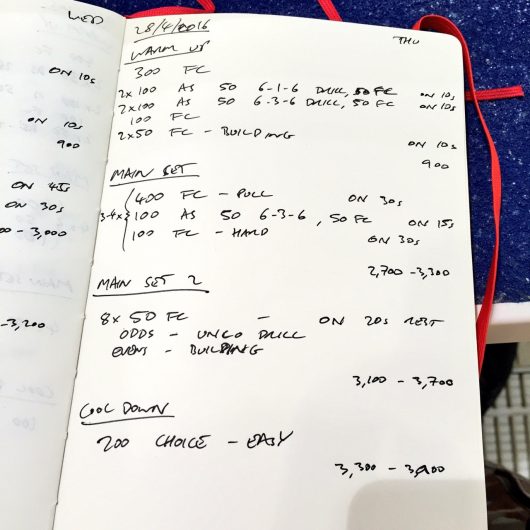 WED
ON 10s
ON 10s
900
ON 45s
ON 30s
00 - 3,000
-3,200
28/4/2016
THU
WARM UP
300 FC
2x100 AS 50 6-1-6 DRILL, 50 FC ON 10s
2x100 AS 50 6-3-6 DRILL, 50 FC ON 10s
100 FC
2x50 FC - BUILDING ON 10s
900
MAIN SET
400 FC - PULL ON 30s
3-4x 100 AS 50 6-3-6, 50 FC ON 15s
100 FC - HARD ON 30s
2,700 - 3,300
MAIN SET 2
8x 50 FC - ON 20s REST
ODDS - UNCO DRILL
EVENS - BUILDING
3,100 - 3,700
COOL DOWN
200 CHOICE - EASY
3,300 - 3,900